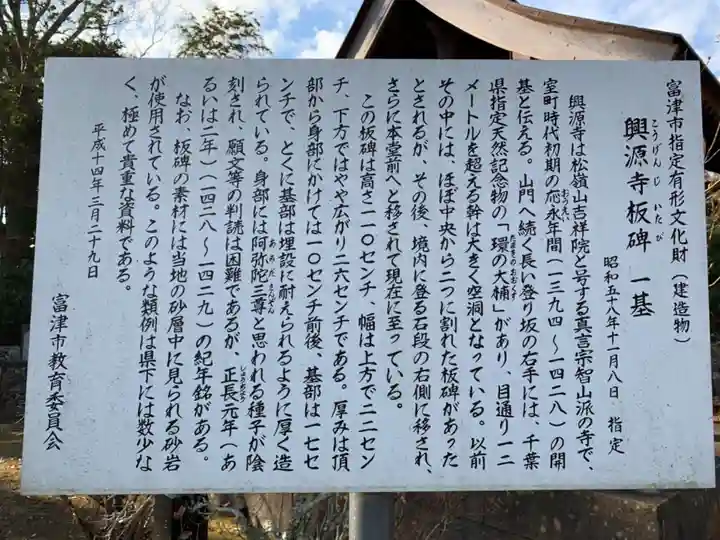 富津市指定有形文化財（建造物）
興源寺板碑　一基
こうげんじいたび
昭和五十八年十一月八日　指定
興源寺は松嶺山吉祥院と号する真言宗智山派の寺で、
室町時代初期の応永年間（一三九四～一四二八）の開
おうえい
基と伝える。山門へ続く長い登り坂の右手には、千葉
県指定天然記念物の「環の大樟」があり、目通り一二
たまきのおおくす
メートルを超える幹は大きく空洞となっている。以前
その中には、ほぼ中央から二つに割れた板碑があった
とされるが、その後、境内に登る石段の右側に移され、
さらに本堂前へと移されて現在に至っている。
この板碑は高さ一一〇センチ、幅は上方で二二セン
チ、下方ではやや広がり二六センチである。厚みは頂
部から身部にかけては一〇センチ前後、基部は一七セ
ンチで、とくに基部は埋設に耐えられるように厚く造
られている。身部には阿弥陀三尊と思われる種子が陰
あみださんぞん
刻され、願文等の判読は困難であるが、正長元年（あ
しょうちょう
るいは二年）（一四二八～一四二九）の紀年銘がある。
なお、板碑の素材には当地の砂層中に見られる砂岩
が使用されている。このような類例は県下には数少な
く、極めて貴重な資料である。
平成十四年三月二十九日
富津市教育委員会